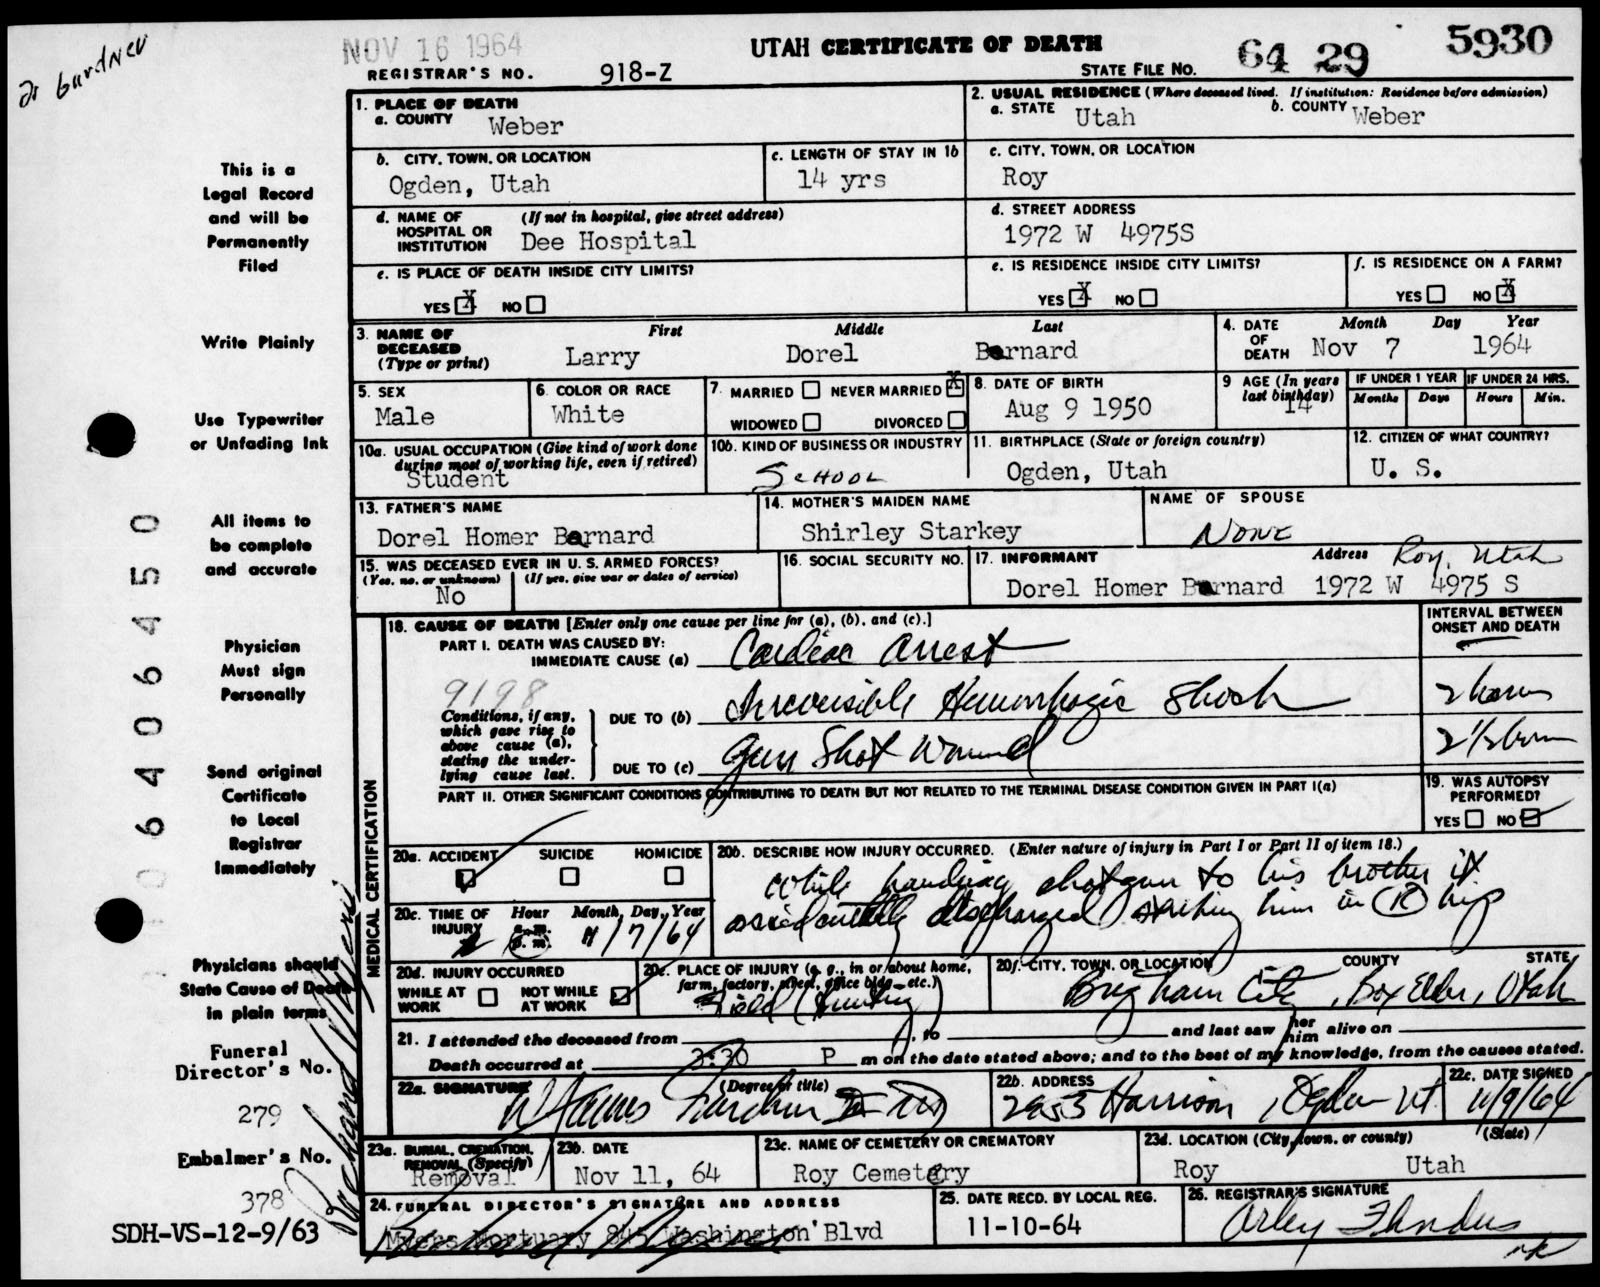 Dr Gardner
NOV 16 1964
UTAH CERTIFICATE OF DEATH
64 29 5930
REGISTRAR'S NO. 918-Z
STATE FILE NO.
1. PLACE OF DEATH
a. COUNTY Weber
2. USUAL RESIDENCE (Where deceased lived. If institution: Residence before admission)
a. STATE Utah b. COUNTY Weber
b. CITY, TOWN, OR LOCATION Ogden, Utah
c. LENGTH OF STAY IN 1b 14 yrs
c. CITY, TOWN, OR LOCATION Roy
d. NAME OF HOSPITAL OR INSTITUTION (If not in hospital, give street address) Dee Hospital
d. STREET ADDRESS 1972 W 4975S
e. IS PLACE OF DEATH INSIDE CITY LIMITS? YES X NO
e. IS RESIDENCE INSIDE CITY LIMITS? YES X NO
f. IS RESIDENCE ON A FARM? YES NO X
3. NAME OF DECEASED (Type or print) First Middle Last
Larry Dorel Barnard
4. DATE OF DEATH Month Day Year
Nov 7 1964
5. SEX Male
6. COLOR OR RACE White
7. MARRIED NEVER MARRIED X
WIDOWED DIVORCED
8. DATE OF BIRTH Aug 9 1950
9 AGE (In years last birthday) 14
IF UNDER 1 YEAR Months Days
IF UNDER 24 HRS. Hours Min.
10a. USUAL OCCUPATION (Give kind of work done during most of working life, even if retired) Student
10b. KIND OF BUSINESS OR INDUSTRY SCHOOL
11. BIRTHPLACE (State or foreign country) Ogden, Utah
12. CITIZEN OF WHAT COUNTRY? U. S.
13. FATHER'S NAME Dorel Homer Barnard
14. MOTHER'S MAIDEN NAME Shirley Starkey
NAME OF SPOUSE None
15. WAS DECEASED EVER IN U. S. ARMED FORCES? (Yes, no, or unknown) (If yes, give war or dates of service) No
16. SOCIAL SECURITY NO.
17. INFORMANT Address Roy, Utah
Dorel Homer Barnard 1972 W 4975 S
MEDICAL CERTIFICATION
18. CAUSE OF DEATH [Enter only one cause per line for (a), (b), and (c).]
INTERVAL BETWEEN ONSET AND DEATH
PART I. DEATH WAS CAUSED BY:
IMMEDIATE CAUSE (a) Cardiac Arrest
9198
Conditions, if any, which gave rise to above cause (a), stating the underlying cause last.
DUE TO (b) Irreversible Hemorrhagic Shock 2 hours
DUE TO (c) Gun Shot Wound 2 1/2 hours
PART II. OTHER SIGNIFICANT CONDITIONS CONTRIBUTING TO DEATH BUT NOT RELATED TO THE TERMINAL DISEASE CONDITION GIVEN IN PART I(a)
19. WAS AUTOPSY PERFORMED? YES NO
20a. ACCIDENT SUICIDE HOMICIDE
20b. DESCRIBE HOW INJURY OCCURRED. (Enter nature of injury in Part I or Part II of item 18.)
while handing shotgun to his brother it
accidentally discharged striking him in (R) hip
20c. TIME OF INJURY Hour Month, Day, Year
a.m. p.m. 11/7/64
20d. INJURY OCCURRED
WHILE AT WORK NOT WHILE AT WORK
20e. PLACE OF INJURY (e. g., in or about home, farm, factory, street, office bldg., etc.)
Field (Hunting)
20f. CITY, TOWN, OR LOCATION COUNTY STATE
Brigham City, Box Elder, Utah
21. I attended the deceased from , to and last saw her him alive on
Death occurred at 3:30 P m on the date stated above; and to the best of my knowledge, from the causes stated.
22a. SIGNATURE (Degree or title)
22b. ADDRESS Harrison, Ogden Ut.
22c. DATE SIGNED 11/9/64
23a. BURIAL, CREMATION, REMOVAL (Specify) Removal
23b. DATE Nov 11, 64
23c. NAME OF CEMETERY OR CREMATORY Roy Cemetery
23d. LOCATION (City, town, or county) (State)
Roy Utah
24. FUNERAL DIRECTOR'S SIGNATURE AND ADDRESS
Myers Mortuary 845 Washington Blvd
25. DATE RECD. BY LOCAL REG. 11-10-64
26. REGISTRAR'S SIGNATURE
This is a
Legal Record
and will be
Permanently
Filed
Write Plainly
Use Typewriter
or Unfading Ink
All items to
be complete
and accurate
Physician
Must sign
Personally
Send original
Certificate
to Local
Registrar
Immediately
Physicians should
State Cause of Death
in plain terms
Funeral
Director's No.
279
Embalmer's No.
378
SDH-VS-12-9/63
06406450